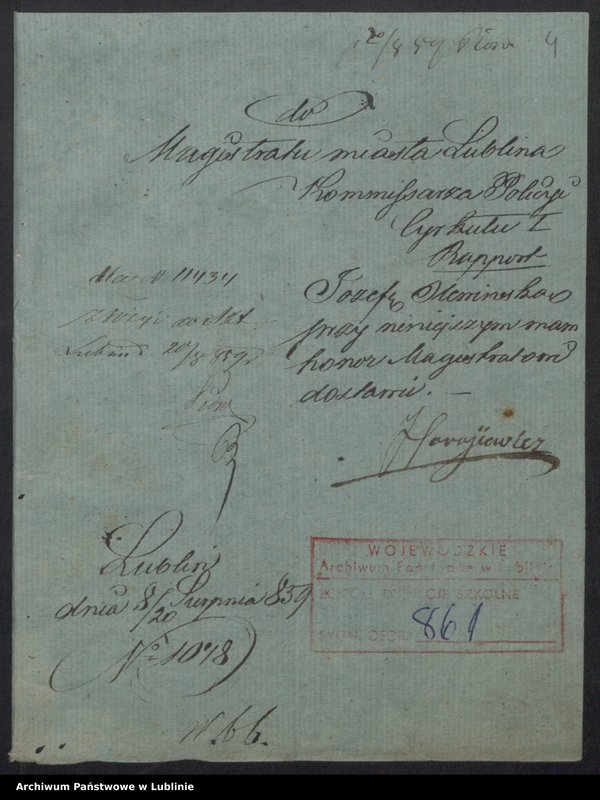 20/8 859
4
do
Magistratu miasta Lublina
Kommissarza Policyi
Cyrkułu I
Rapport
Józefę
przy niniejszym mam
honor Magistratowi
dostawić. —
N 11434
Lublin d 20/8 859
Lublin
dnia 8/20 Sierpnia 859
No 1048
W. 66.
WOJEWÓDZKIE
Archiwum Państwowe w Lublinie
SZKOLNE
SYGN. OSOB. 861
Archiwum Państwowe w Lublinie